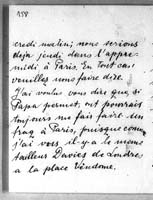 158
credi matin; nous serions
deja jeudi dans l'apres
midi à Paris. En tout cas
veuilles nous faire dire.
J'ai voulu vous dire que, si
Papa permet, ont pourrais
toujours me fais faire un
fraq à Paris, puisque comme
j'ai vos il-y-a le meme
tailleur Davies de Londres
a la place Vendome.